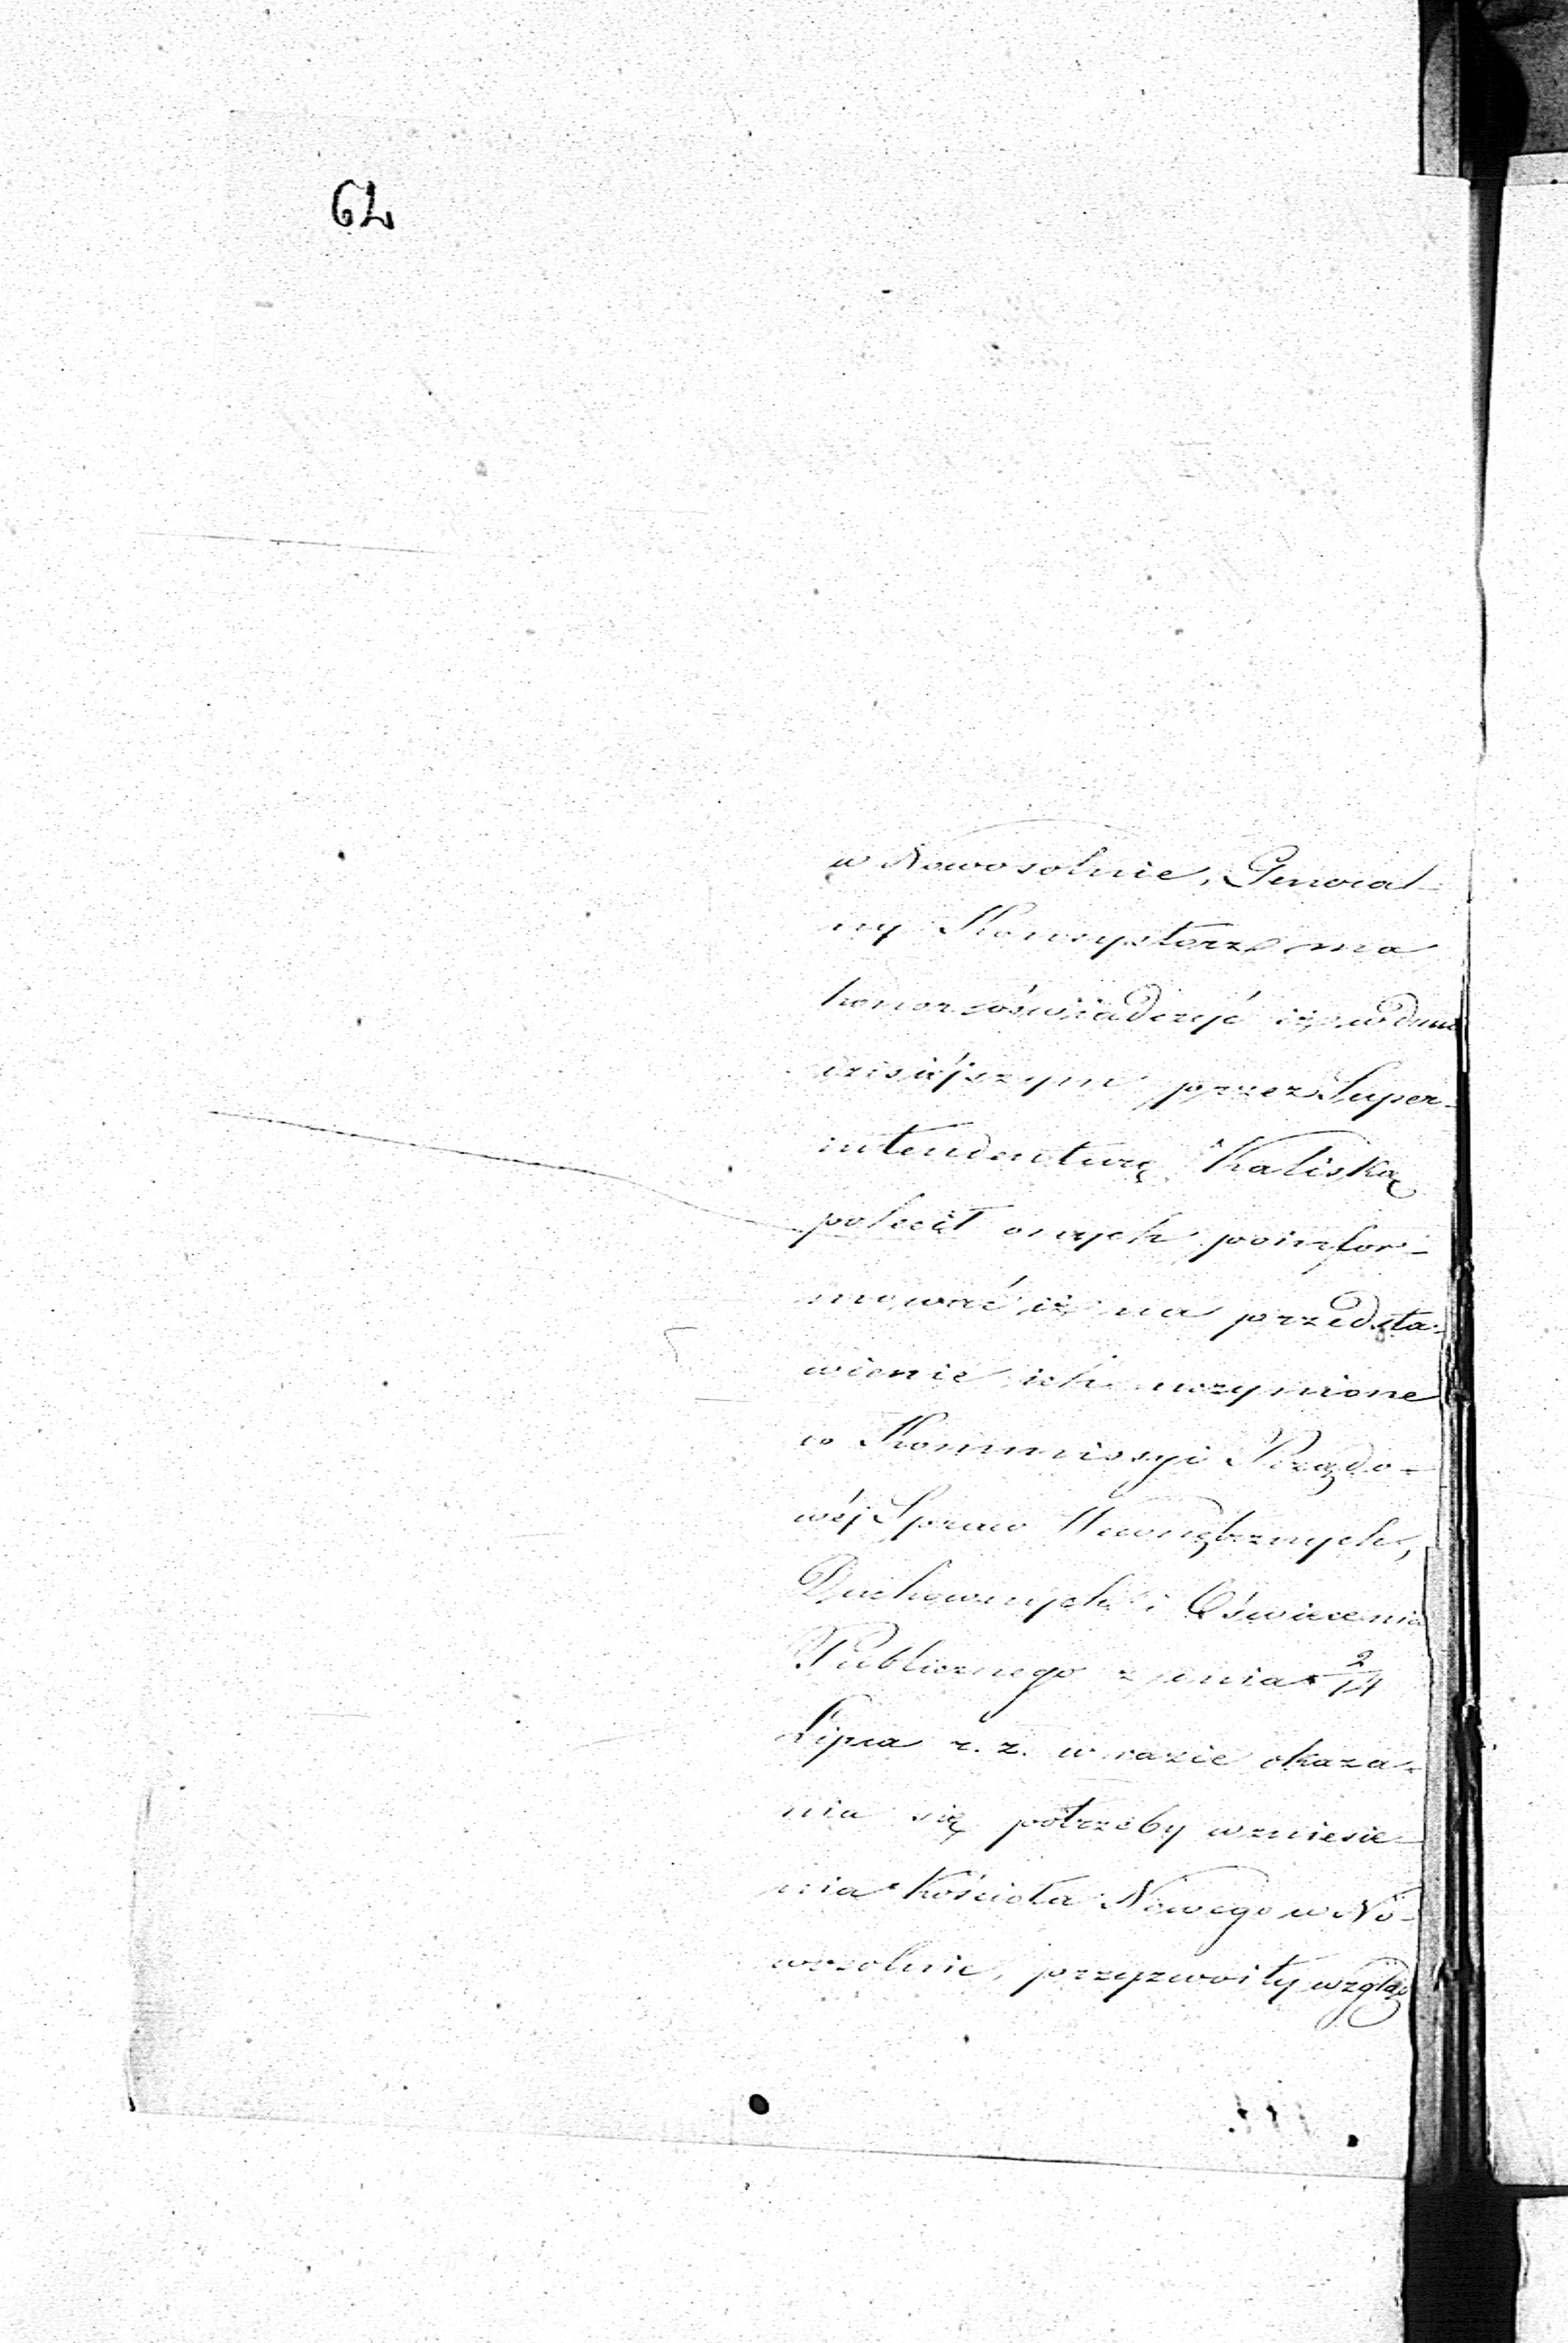 62
w Nowosolnie, General-
ny Konsystorz ma
honor oświadczyć iż w dniu
dzisiéjszym przez Super-
intendenturę Kaliską
polecił onych poinfor-
mować iż na przedsta-
wienie ich uczynione
w Kommissyi Rządo-
wéj Spraw Wewnętrznych,
Duchownych i Oświecenia
Publicznego z dnia 2/14
Lipca r. z. w razie okaza-
nia się potrzeby wzniesie-
nia Kościoła Nowego w No-
wosolnie, przyzwoity wzgląd